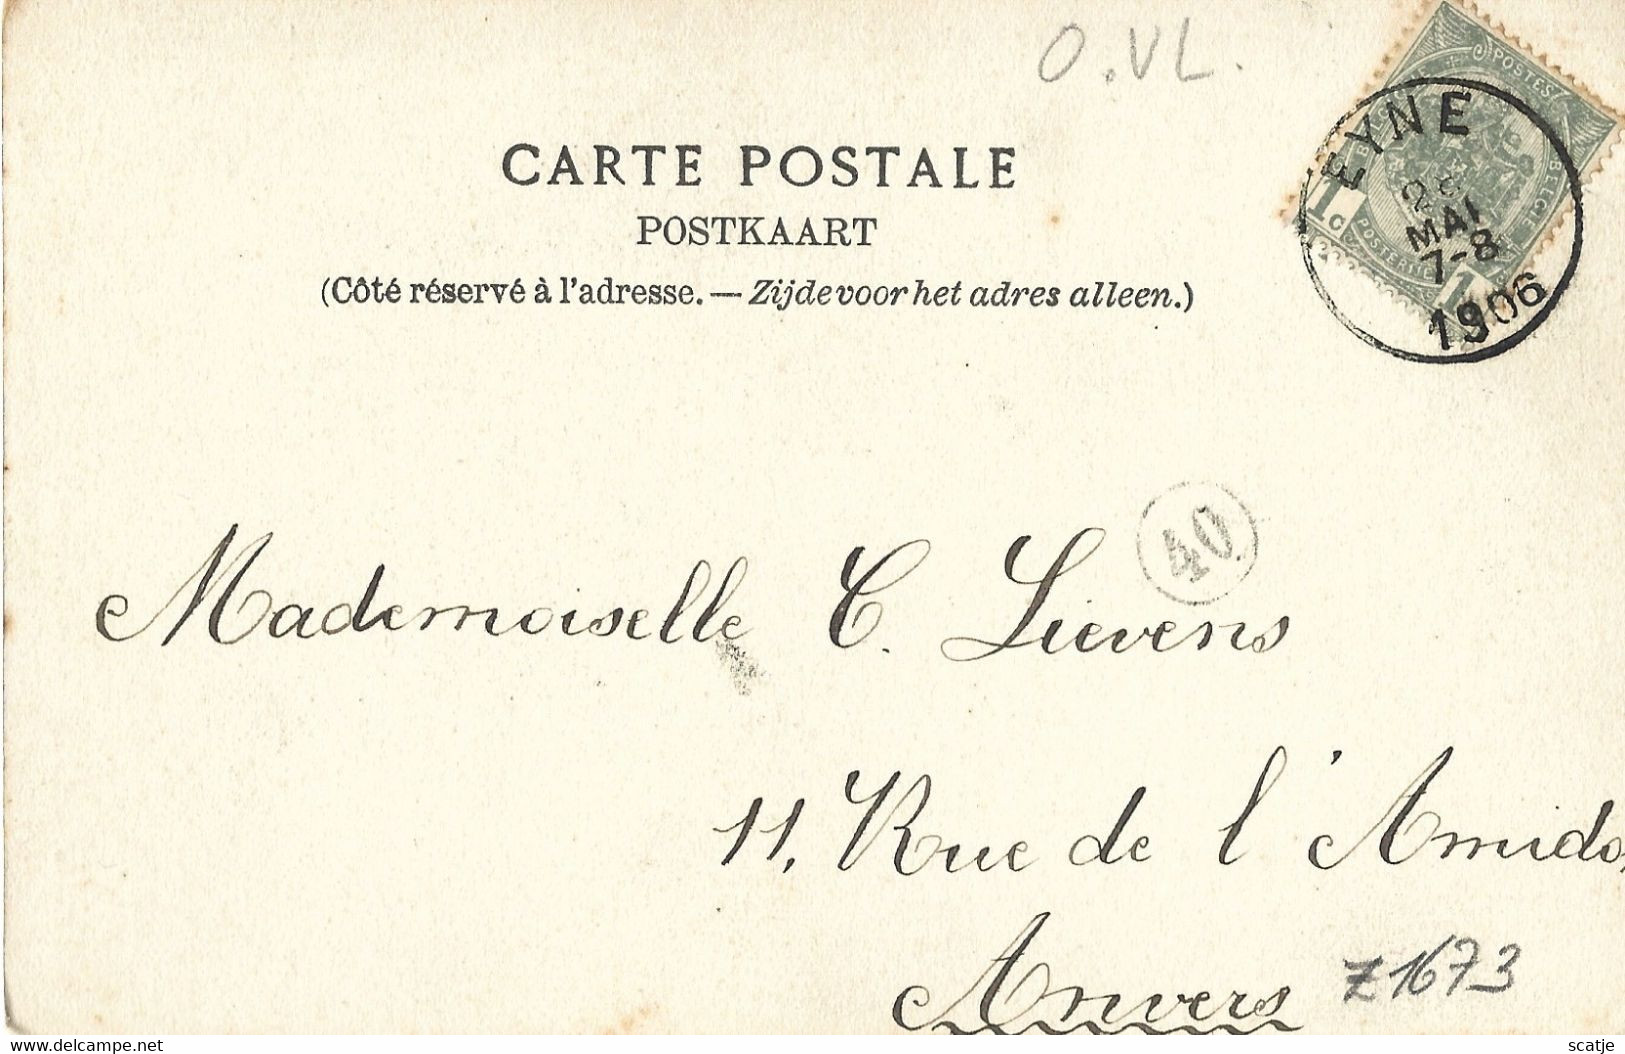 O.VL.
CARTE POSTALE
POSTKAART
(Côté réservé à l'adresse. — Zijde voor het adres alleen.)
POSTES
1 c
POSTERIJEN
EYNE
MAI
7-8
1906
40
Mademoiselle C. Lievens
11, Rue de l'Amido
Anvers
Z1673
www.delcampe.net
scatje